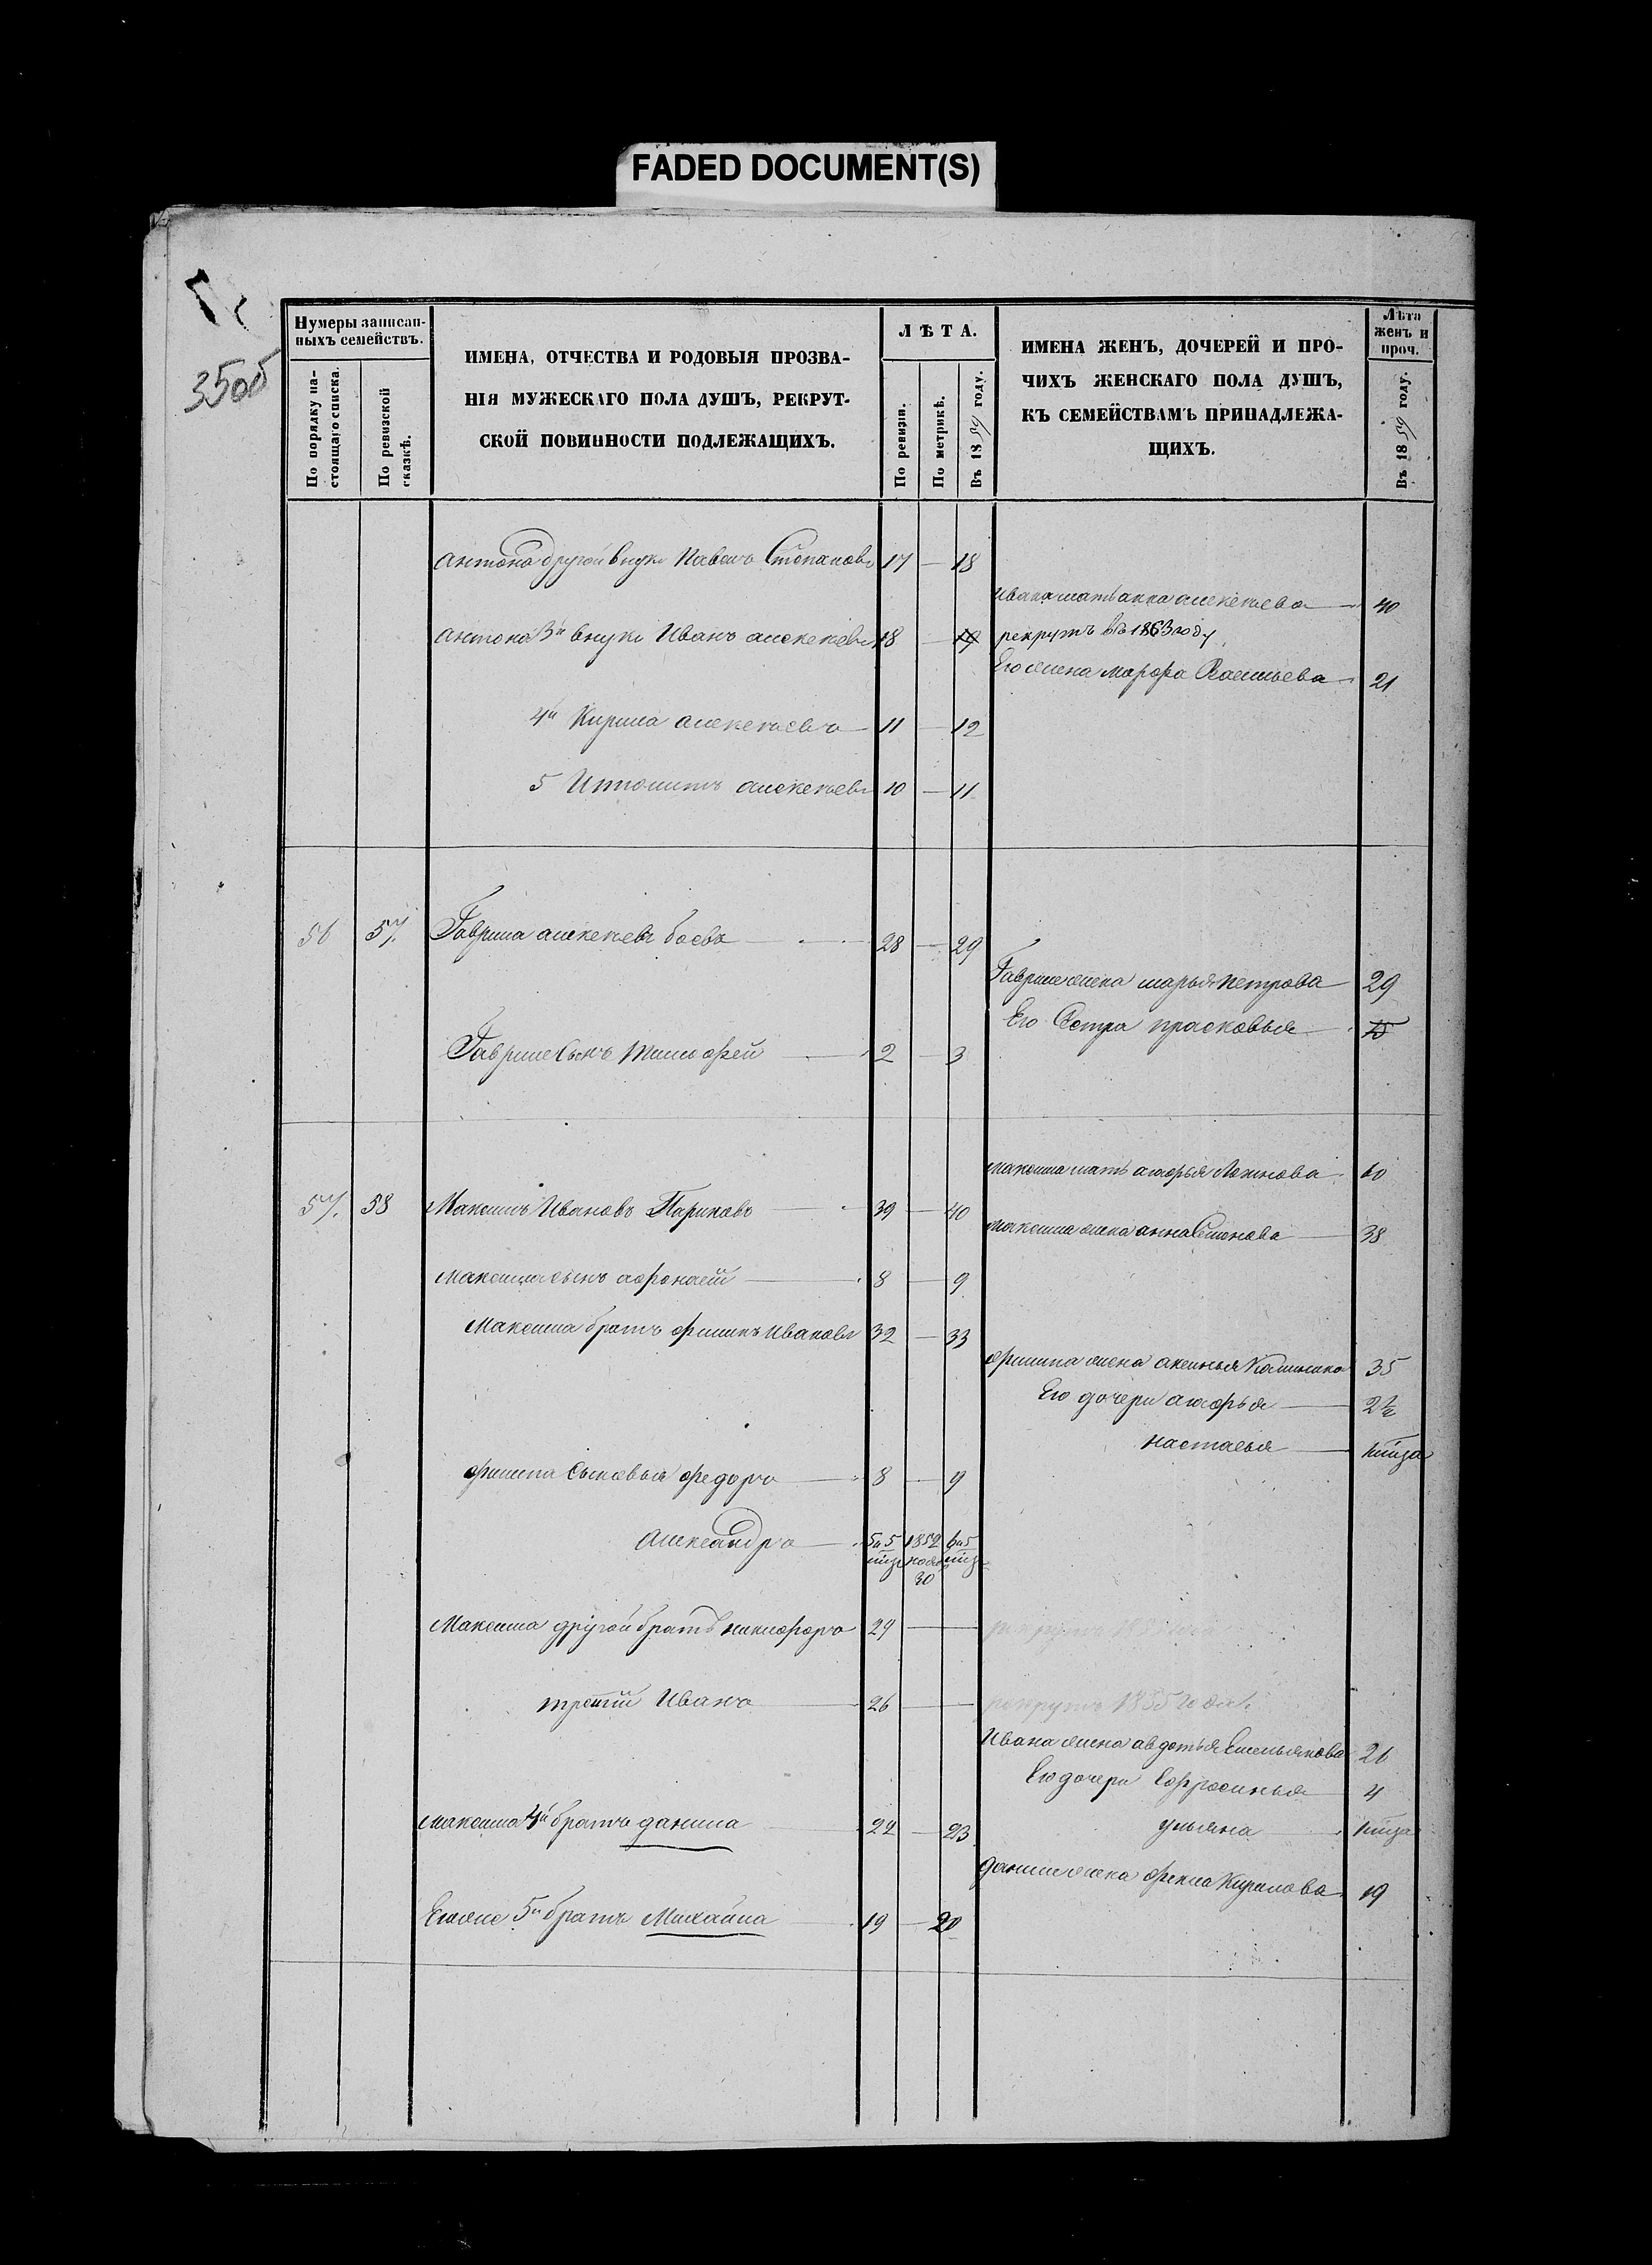 FADED DOCUMENT(S)
35об
Нумеры записан-
ныхъ семействъ.
По порядку на-
стоящаго списка.
По ревизской
сказкѣ.
ИМЕНА, ОТЧЕСТВА И РОДОВЫЯ ПРОЗВА-
НІЯ МУЖЕСКАГО ПОЛА ДУШЪ, РЕКРУТ-
СКОЙ ПОВИННОСТИ ПОДЛЕЖАЩИХЪ.
ЛѢТА.
По ревизіи.
По метрикѣ.
Въ 1859 году.
ИМЕНА ЖЕНЪ, ДОЧЕРЕЙ И ПРО-
ЧИХЪ ЖЕНСКАГО ПОЛА ДУШЪ,
КЪ СЕМЕЙСТВАМЪ ПРИНАДЛЕЖА-
ЩИХЪ.
Лѣта
женъ и
проч.
Въ 1859 году.
Антона другой внукъ Павелъ Степановъ 17 — 18
Ивана мать анна алексѣева 40
Антона 3й внукъ Иванъ алексѣевъ 18 — 19 рекрутъ въ 1863 году
Его жена марфа Васильева 21
4й Кирила алексѣевъ 11 — 12
5 Иполитъ алексѣевъ 10 — 11
56 57. Гаврила алексѣевъ боевъ 28 — 29
Гаврилы жена марья петрова 29
Его Сестра прасковья 15
Гаврилы Сынъ Тимофей 2 — 3
максима мать агафья Логинова 60
57. 58 Максимъ Ивановъ Париковъ 39 — 40
максима жена анна Семенова 38
Максима сынъ афонасій 8 — 9
Максима братъ филипъ Ивановъ 32 — 33
филипа жена аксинья 35
Его дочери агафья 2½
настасья
филипа Сыновья федоръ 8 — 9
Александръ 5и5 1852 6и5
30
Максима другой братъ никифоръ 29 —
третій Иванъ 26 — рекрутъ 1855 года
Ивана жена авдотья Емельянова 26
Его дочери Ефросинья 4
ульяна
Максима 4й братъ данила 22 — 23
данилы жена фекла Кирилова 19
Егоже 5й братъ Михайла 19 — 20